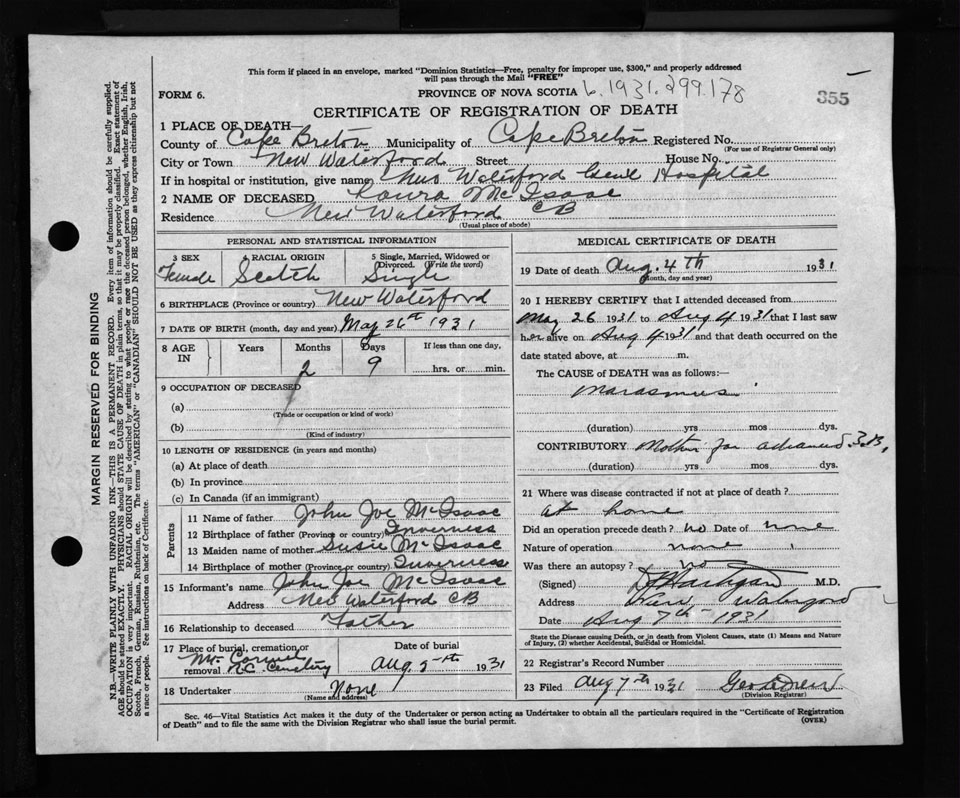 This form if placed in an envelope, marked "Dominion Statistics—Free, penalty for improper use, $300," and properly addressed
will pass through the Mail "FREE"
FORM 6.
PROVINCE OF NOVA SCOTIA 6.1931.299.178
355
CERTIFICATE OF REGISTRATION OF DEATH
1 PLACE OF DEATH—
County of Cape Breton Municipality of Cape Breton Registered No.
(For use of Registrar General only)
City or Town New Waterford Street House No.
If in hospital or institution, give name New Waterford Genl Hospital
2 NAME OF DECEASED Laura McIsaac
Residence New Waterford CB
(Usual place of abode)
PERSONAL AND STATISTICAL INFORMATION
3 SEX
Female
4 RACIAL ORIGIN
Scotch
5 Single, Married, Widowed or
Divorced. (Write the word)
Single
6 BIRTHPLACE (Province or country) New Waterford
7 DATE OF BIRTH (month, day and year) May 26th 1931
8 AGE
IN
Years
Months
2
Days
9
If less than one day,
hrs. or min.
9 OCCUPATION OF DECEASED
(a)
(Trade or occupation or kind of work)
(b)
(Kind of industry)
10 LENGTH OF RESIDENCE (in years and months)
(a) At place of death
(b) In province
(c) In Canada (if an immigrant)
Parents
11 Name of father John Joe McIsaac
12 Birthplace of father (Province or country) Inverness
13 Maiden name of mother Susie McIsaac
14 Birthplace of mother (Province or country) Inverness
15 Informant's name John Joe McIsaac
Address New Waterford CB
16 Relationship to deceased Father
17 Place of burial, cremation or
removal Mt Carmel
R.C. Cemetery
Date of burial
Aug. 5th 1931
18 Undertaker None
(Name and address)
MEDICAL CERTIFICATE OF DEATH
19 Date of death Aug. 4th 1931
(month, day and year)
20 I HEREBY CERTIFY that I attended deceased from
May 26 1931 to Aug 4 1931 that I last saw
her alive on Aug 4 1931 and that death occurred on the
date stated above, at m.
The CAUSE of DEATH was as follows:—
Marasmus
(duration) yrs mos dys.
CONTRIBUTORY Mother far advanced T.B.
(duration) yrs mos dys.
21 Where was disease contracted if not at place of death?
at home
Did an operation precede death? no Date of none
Nature of operation none
Was there an autopsy? no
(Signed) Hartigan M.D.
Address New Waterford
Date Aug 7th 1931
State the Disease causing Death, or in death from Violent Causes, state (1) Means and Nature
of Injury, (2) whether Accidental, Suicidal or Homicidal.
22 Registrar's Record Number
23 Filed Aug 7th 1931
(Division Registrar)
Sec. 46—Vital Statistics Act makes it the duty of the Undertaker or person acting as Undertaker to obtain all the particulars required in the "Certificate of Registration
of Death" and to file the same with the Division Registrar who shall issue the burial permit. (OVER)
MARGIN RESERVED FOR BINDING
N.B.—WRITE PLAINLY WITH UNFADING INK—THIS IS A PERMANENT RECORD. Every item of information should be carefully supplied.
AGE should be stated EXACTLY. PHYSICIANS should STATE CAUSE OF DEATH in plain terms, so that it may be properly classified. Exact statement of
OCCUPATION is very important. RACIAL ORIGIN will be described by stating to what people or race the deceased person belonged, whether English, Irish,
Scotch, French, German, Russian, Ruthenian, etc. The terms "AMERICAN" or "CANADIAN" SHOULD NOT BE USED as they express citizenship but not
a race or people. See instructions on back of Certificate.